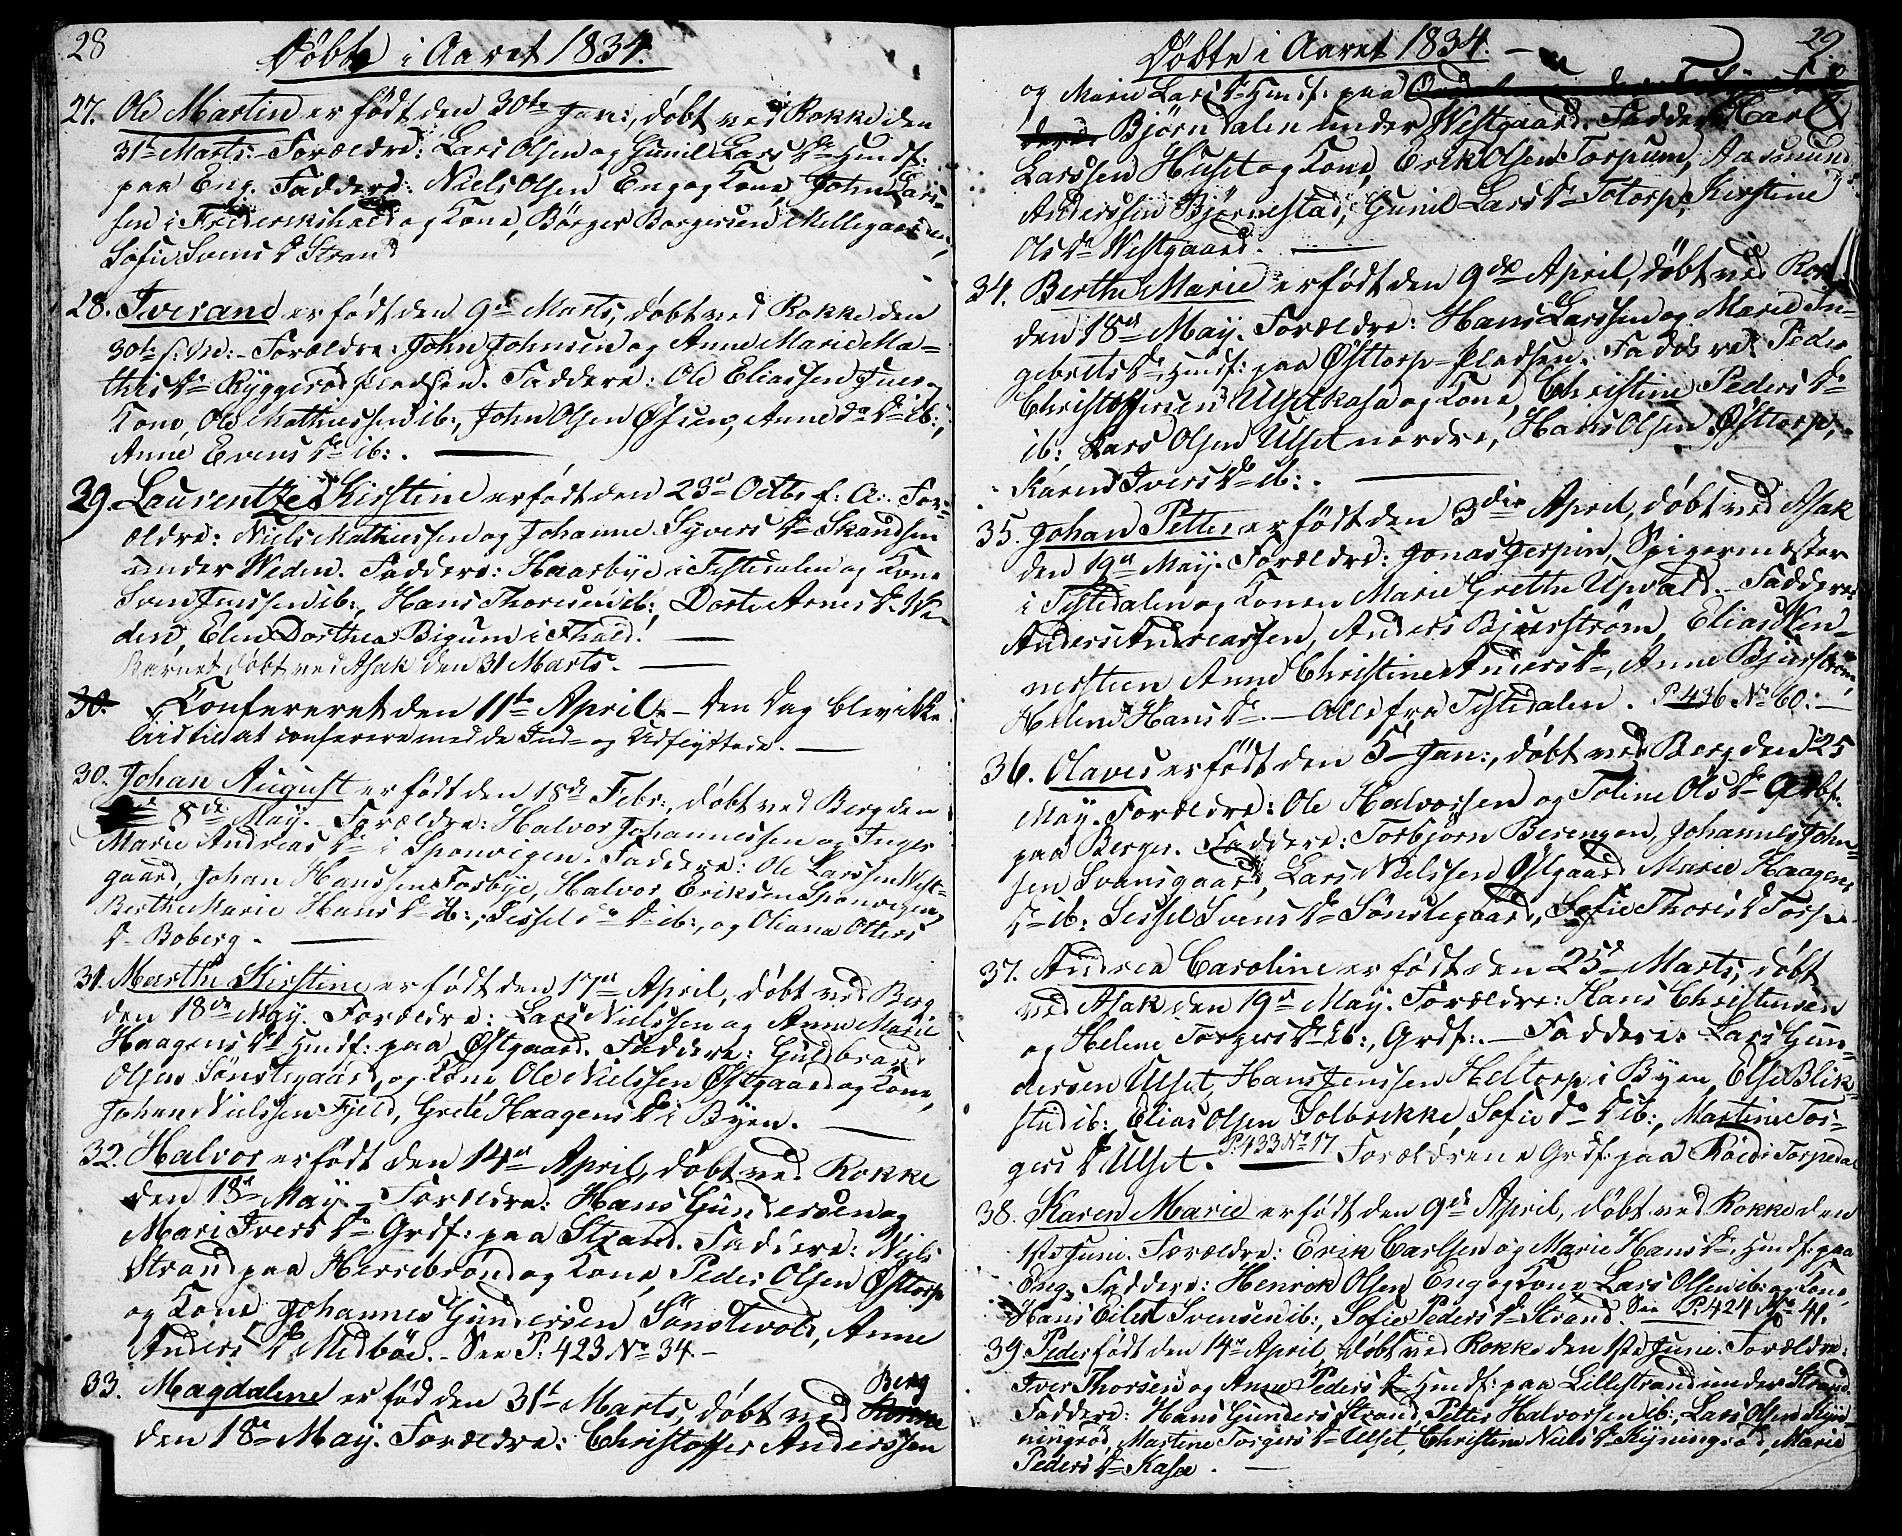 28
Döbte i Aaret 1834.
27. Ole Martin er född den 30te Jan:, döbt ved Rokke den
31te Marts. Forældre: Lars Olsen og Gunil Lars Dr. Huusf:
paa Eng. Faddere: Niels Olsen Eng og Kone, John Lars-
sen i Frederikshald og Kone, Börger Borgersen
Sofie Svens Dr Strand
28. Iverane er född den 9de Marts, döbt ved Rokke den
30te s: Md:. Forældre: John Johnsen og Anne Marie Ma-
this Dr Ryggeröd pladsen. Faddere: Ole Eliassen
Kone, Ole Mathiessen ib:, John Olsen Anne Dr ib:,
Anne Evens Dr ib:.
29. Laurentze Kirstine er född den 23de Octbr f: A:. For-
ældre: Niels Mathiessen og Johanne Syvers Dr Skandsen
under Weden. Faddere: Haasbye i Tistedalen og Kone
Sven Jenssen ib:, Hans Thoresen ib:, Dorte Arnes Dr We-
den, Elen Dorthea Bigum i Fhald.
Barnet döbt ved Asak den 31 Marts.
30. Confereret den 11te April. - Den Dag blev ikke
Tid til at conferere med de Ind- og Udflyttede.
30. Johan August er född den 18de Febr:, döbt ved Berg den
8de May. Forældre: Halvor Johannessen og Inger
Marie Andreas Dr i Sponvigen. Faddere: Ole Larssen West-
gaard, Johan Hanssen Torbye, Halvor Eriksen Sponvigen,
Berthe Marie Hans Dr ib:, Sissel Dr ib:, og Oliana Otters
Dr Boberg.
31. Marthe Kirstine er född den 17de April, döbt ved Berg
den 18de May. Forældre: Lars Nielssen og Anne Marie
Haagens Dr Huusf: paa Östgaard. Faddere: Guldbrand
Olsen Sönstegaard og Kone, Ole Nielssen Östgaard og Kone,
Johan Nielssen Fjeld, Grete Haagens Dr i Byen.
32. Halvor er född den 14de April, döbt ved Rokke
den 18de May. Forældre: Hans Gundersen og
Mari Ivers Dr Grdf: paa Strand. Faddere: Niels
Strand paa Herrebrönd og Kone, Peder Olsen Östtorp
og Kone, Johannes Gundersen Sönstevold, Anne
Anders Dr Medböe. - See P: 423 No 34 -
33. Magdalene er född den 31te Marts, döbt ved Berg
den 18de May. Forældre: Christoffer Anderssen
29
Döbte i Aaret 1834.
og Marie Lars Dr Huusf: paa
Björndalen under Westgaard. Faddere: Carl
Larssen Huset og Kone, Erik Olsen Torpum, Aasmund
Anderssen Björnestad, Gunil Lars Dr Totorp, Kirstine
Ols Dr Westgaard.
34. Berthe Marie er född den 9de April, döbt ved Rokke
den 18de May. Forældre: Hans Larssen og Marie In-
gebrets Dr, Huusf: paa Östtorp-Pladsen. Faddere: Peder
Christoffersen Ulsetkasa og Kone, Christine Peders Dr
ib:, Lars Olsen Ulset nordre, Hans Olsen Östtorp,
Karen Ivers Dr ib:.
35. Johan Petter er född den 3die April, döbt ved Asak
den 19de May. Forældre: Jonas Jespin, Spigermester
i Tistedalen og Konen Marie Grethe Upvald. Faddere:
Anders Andreassen, Anders Bjurström, Elias Wen-
nersteen, Anne Christine Anders Dr, Anne Bjurström,
Helene Hans Dr. - Alle fra Tistedalen. P 436 No 60:-
36. Olaves er född den 5te Jan:, döbt ved Berg den 25
May. Forældre: Ole Halvorssen og Toline Ols Dr
paa Berger. Faddere: Torbjörn Berengen, Johannes John-
sen Svensgaard, Lars Nielssen Östgaard, Marie Haagens
Dr ib:, Sissel Svens Dr Sönstegaard, Sofie Thores Dr Torp.
37. Andrea Caroline er född den 25de Marts, döbt
ved Asak den 19de May. Forældre: Hans Christensen
og Helene Torgers Dr ib:, Grdf:. - Faddere: Lars Gun-
dersen Ulset, Hans Jenssen Heltorp i Byen, Else Blik-
stad ib:, Elias Olsen Solbrekke, Sofie Dr ib:, Martine Tor-
gers Dr Ulset. P. 433 No 17 Forældrene Grdf: paa Röed i Torpedal
38. Karen Marie er född den 9de April, döbt ved Rokke den
1ste Juni. Forældre: Erik Carlsen og Marie Hans Dr, Huusf: paa
Eng. Faddere: Henrik Olsen Eng og Kone, Lars Olsen ib: og Kone,
Hans Eilert Svensen ib:, Sofie Peders Dr Strand. See P. 424 No 41.
39. Peder född den 14de April, döbt ved Rokke den 1ste Juni. Forældre:
Iver Thorsen og Anne Peders Dr Huusf: paa Lillestrand under Strand.
Faddere: Hans Gunders Strand, Petter Halvorssen ib:, Lars Olsen Kyn-
ningröd, Martine Torgers Dr Ulset, Christine Niels Dr Kyningröd, Marie
Peders Dr Kasa.